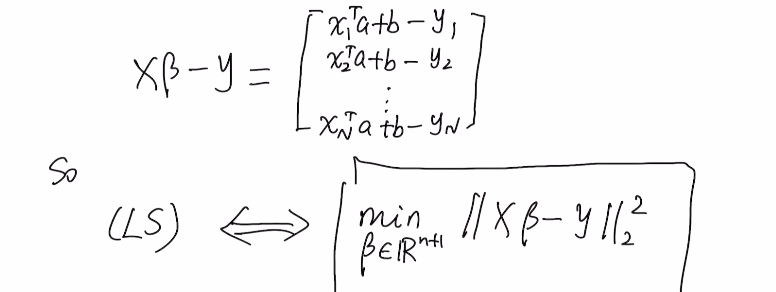 Xβ − y = [ x₁ᵀa + b − y₁
x₂ᵀa + b − y₂
⋮
x_Nᵀa + b − y_N ]
So
(LS) ⟺ min_{β∈ℝⁿ⁺¹} ‖Xβ − y‖₂²